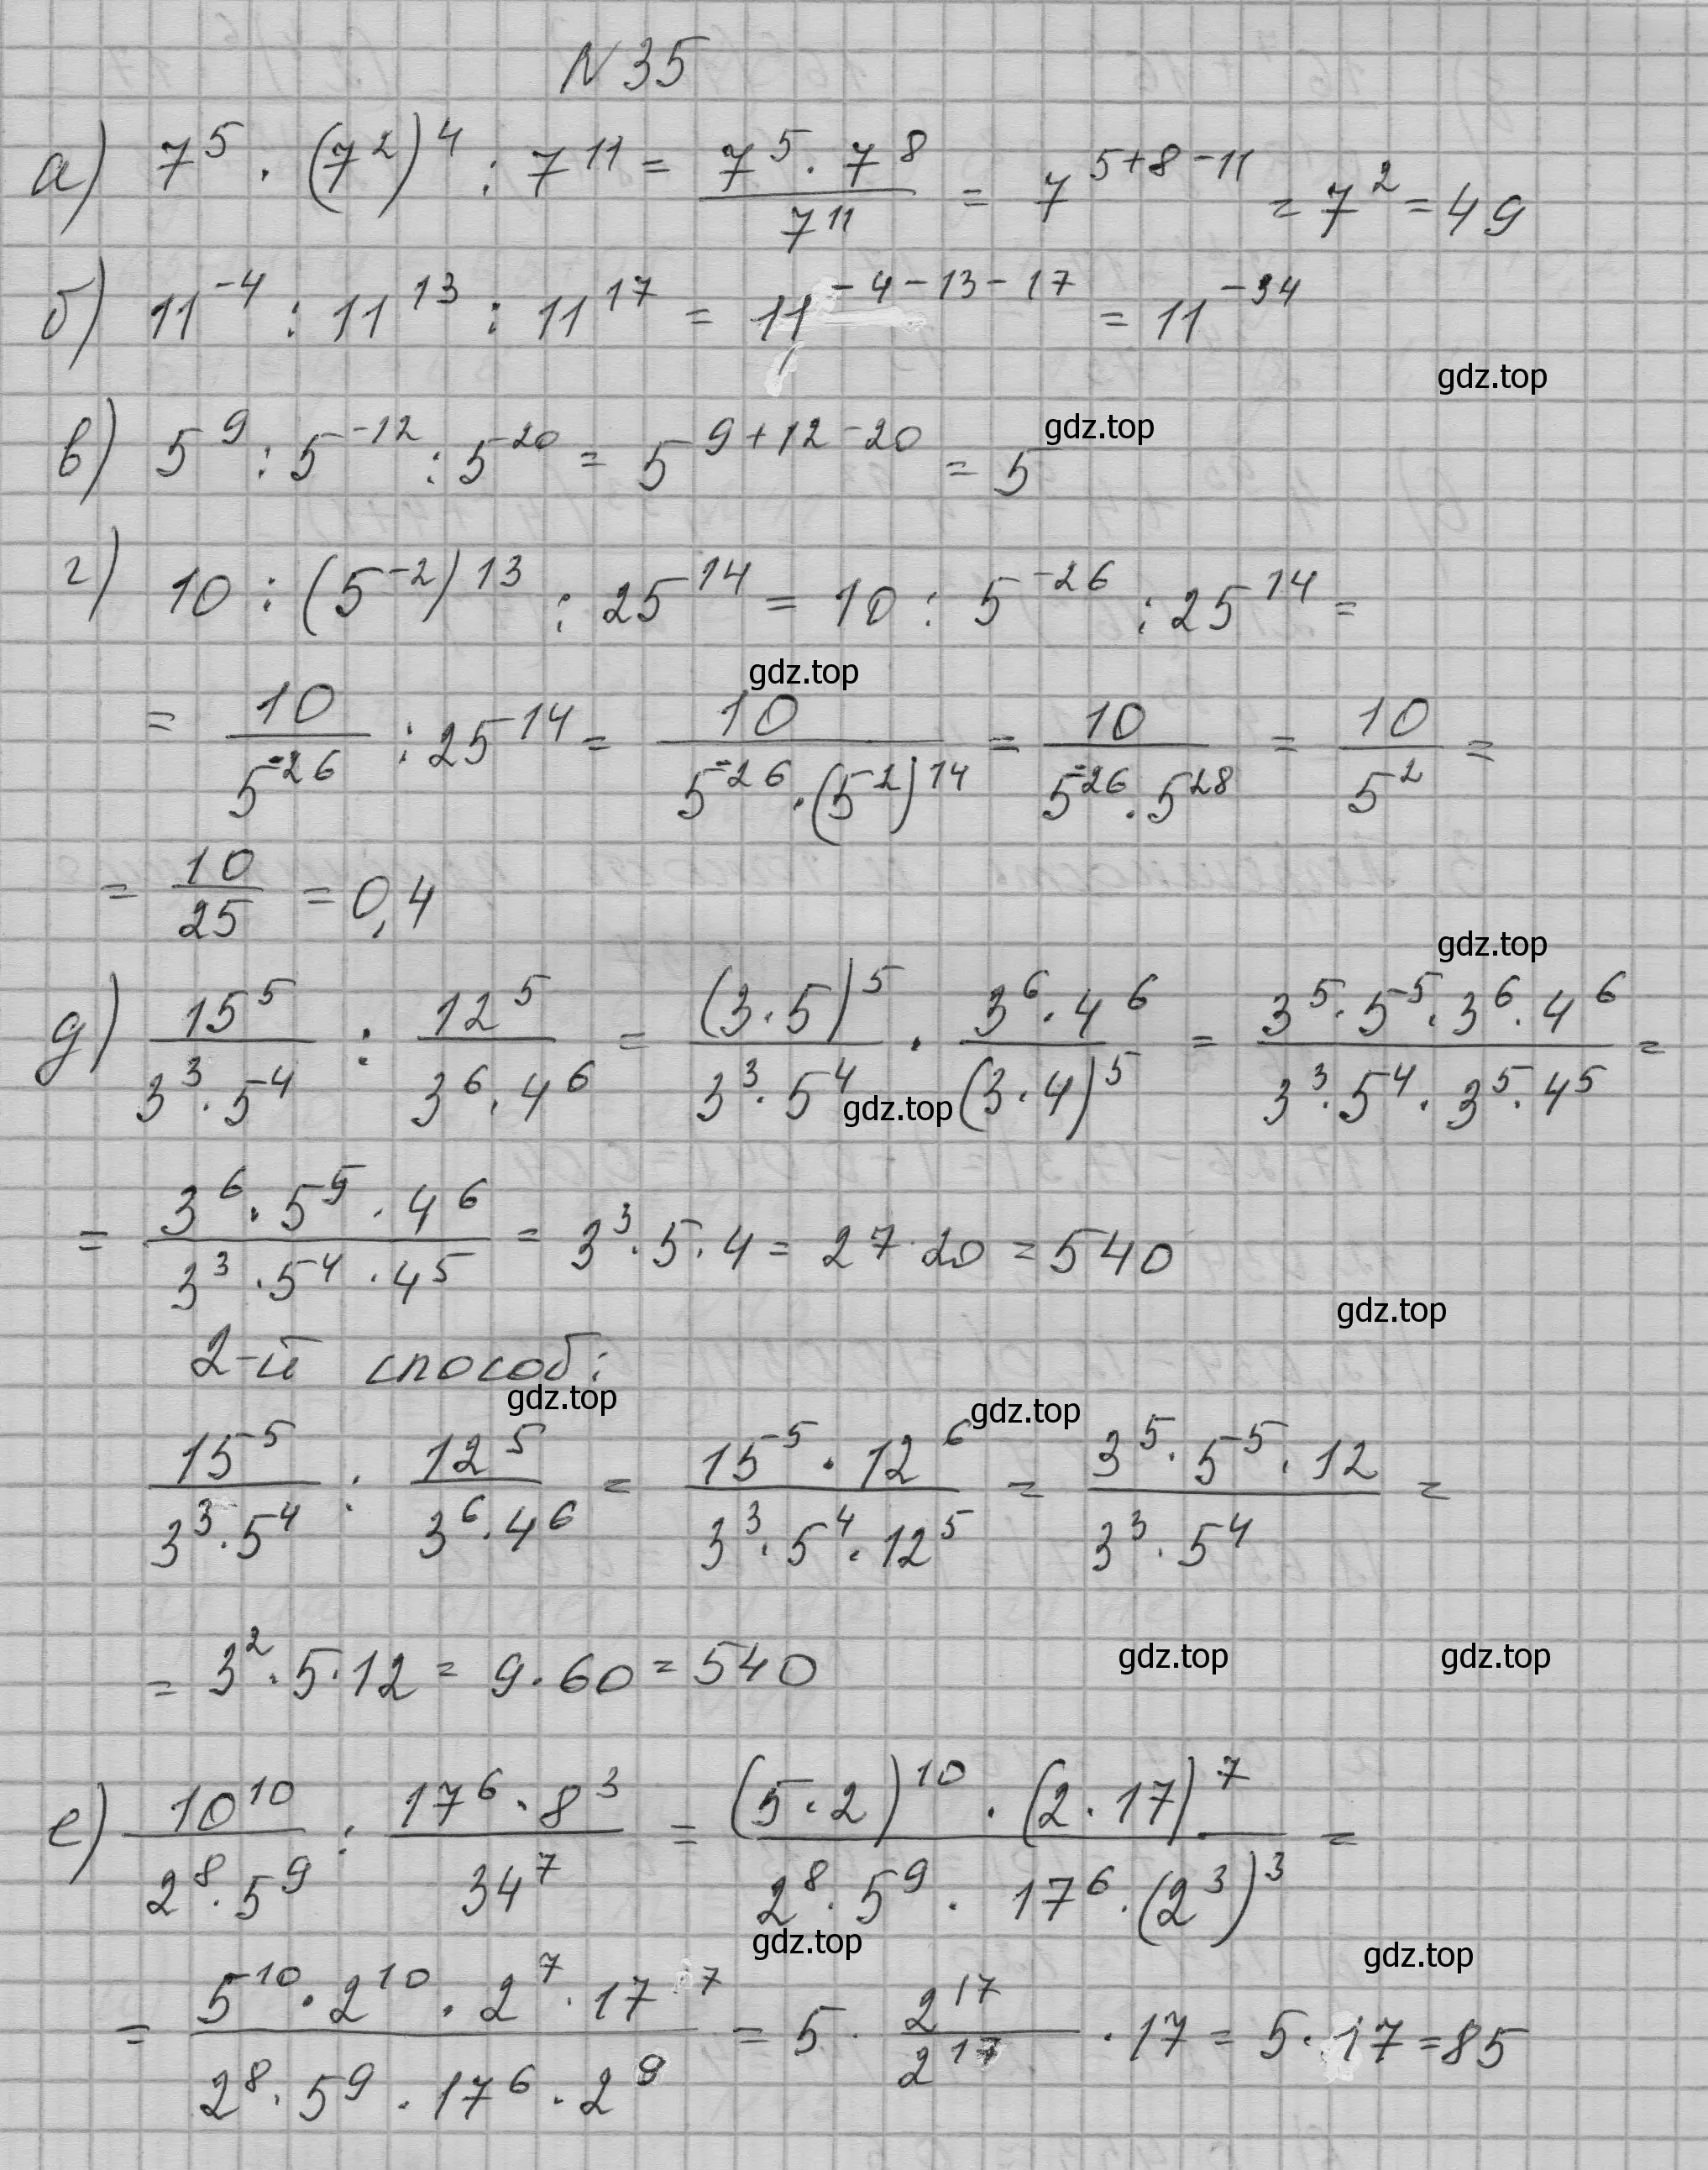 N 35
а) 7^5 · (7^2)^4 : 7^11 = (7^5 · 7^8)/(7^11) = 7^(5+8-11) = 7^2 = 49
б) 11^(-4) : 11^13 : 11^17 = 11^(-4-13-17) = 11^(-34)
gdz.top
в) 5^9 : 5^(-12) : 5^20 = 5^(9+12-20) = 5
gdz.top
г) 10 : (5^(-2))^13 : 25^14 = 10 : 5^(-26) : 25^14 =
gdz.top
= 10/(5^(-26)) : 25^14 = 10/(5^(-26) · (5^2)^14) = 10/(5^(-26) · 5^28) = 10/(5^2) =
= 10/25 = 0,4
gdz.top
д) (15^5)/(3^3 · 5^4) : (12^5)/(3^6 · 4^6) = ((3 · 5)^5)/(3^3 · 5^4) · (3^6 · 4^6)/((3 · 4)^5) = (3^5 · 5^5 · 3^6 · 4^6)/(3^3 · 5^4 · 3^5 · 4^5) =
gdz.top
= (3^6 · 5^5 · 4^6)/(3^3 · 5^4 · 4^5) = 3^3 · 5 · 4 = 27 · 20 = 540
gdz.top
2-й способ:
gdz.top
gdz.top
(15^5)/(3^3 · 5^4) : (12^5)/(3^6 · 4^6) = (15^5 · 12^6)/(3^3 · 5^4 · 12^5) = (3^5 · 5^5 · 12)/(3^3 · 5^4) =
= 3^2 · 5 · 12 = 9 · 60 = 540
gdz.top
gdz.top
е) (10^10)/(2^8 · 5^9) : (17^6 · 8^3)/(34^7) = ((5 · 2)^10 · (2 · 17)^7)/(2^8 · 5^9 · 17^6 · (2^3)^3) =
gdz.top
gdz.top
= (5^10 · 2^10 · 2^7 · 17^7)/(2^8 · 5^9 · 17^6 · 2^9) = 5 · (2^17)/(2^17) · 17 = 5 · 17 = 85